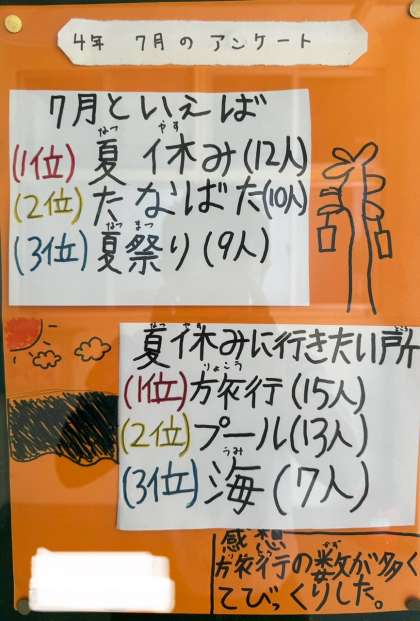 4年 7月のアンケート
7月といえば
(1位) 夏休み(12人)
(2位) たなばた(10人)
(3位) 夏祭り(9人)
夏休みに行きたい所
(1位) 旅行(15人)
(2位) プール(13人)
(3位) 海(7人)
感想
旅行の数が多く
てびっくりした。